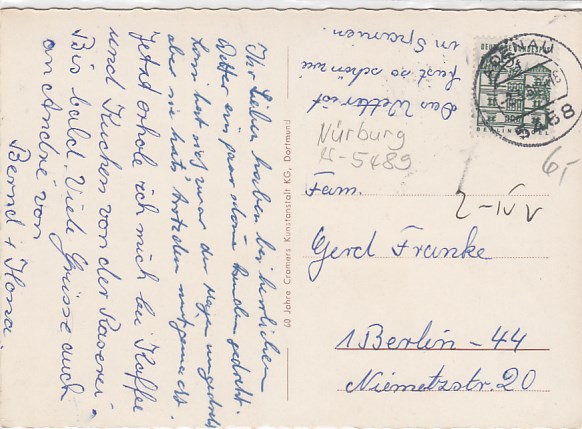 Ihr Lieben haben bei herrlichem
Wetter ein paar schöne Runden gedreht.
hat sich zwar der Magen umgedreht
aber sie hat's trotzdem mitgemacht.
Jetzt erhole ich mich bei Kaffee
und Kuchen von der Raserei.
Bis bald. Viele Grüsse auch
an André von
Bernd + Ilona.
Das Wetter ist
fast so schön wie
in Spanien.
60 Jahre Cramers Kunstanstalt KG, Dortmund
DEUTSCHE BUNDESPOST
BERLIN
ADENAU
5488
Nürburg
5489
6,-
Fam.
Gerd Franke
1 Berlin - 44
Niemetzstr. 20